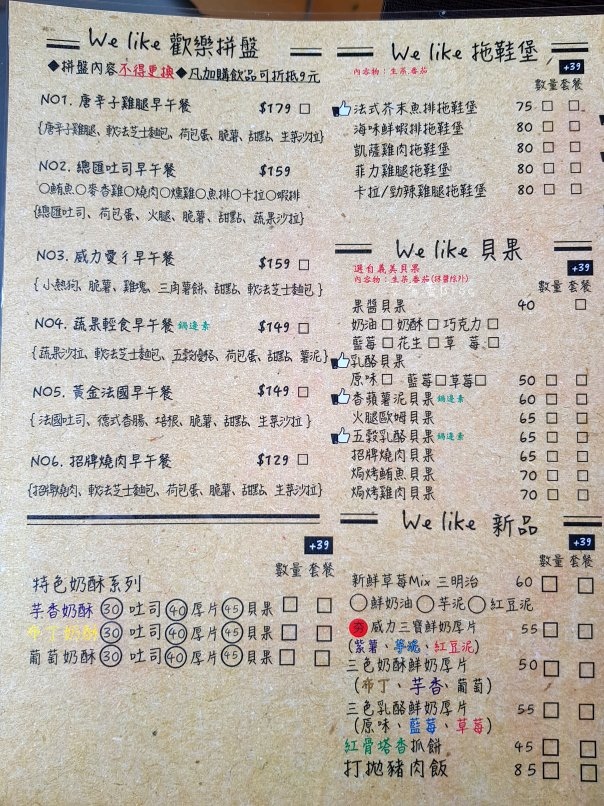 We like 歡樂拼盤
◆拼盤內容不得更換◆凡加購飲品可折抵9元
NO1. 唐辛子雞腿早午餐 $179 □
{唐辛子雞腿、軟法芝士麵包、荷包蛋、脆薯、甜點、生菜沙拉}
NO2. 總匯吐司早午餐 $159
○鮪魚○麥香雞○燒肉○燻雞○魚排○卡拉○蝦排
{總匯吐司、荷包蛋、火腿、脆薯、甜點、蔬果沙拉}
NO3. 威力愛彳早午餐 $159 □
{小熱狗、脆薯、雞塊、三角薯餅、甜點、軟法芝士麵包}
NO4. 蔬果輕食早午餐 鍋邊素 $149 □
{蔬果沙拉、軟法芝士麵包、五穀優格、荷包蛋、甜點、薯泥}
NO5. 黃金法國早午餐 $149 □
{法國吐司、德式香腸、培根、脆薯、甜點、生菜沙拉}
NO6. 招牌燒肉早午餐 $129 □
{招牌燒肉、軟法芝士麵包、荷包蛋、脆薯、甜點、生菜沙拉}
+39
數量 套餐
特色奶酥系列
芋香奶酥 30 吐司 40 厚片 45 貝果 □ □
布丁奶酥 30 吐司 40 厚片 45 貝果 □ □
葡萄奶酥 30 吐司 40 厚片 45 貝果 □ □
We like 拖鞋堡
內容物：生菜.番茄
+39
數量 套餐
法式芥末魚排拖鞋堡 75 □ □
海味鮮蝦排拖鞋堡 80 □ □
凱薩雞肉拖鞋堡 80 □ □
菲力雞腿拖鞋堡 80 □ □
卡拉/勁辣雞腿拖鞋堡 80 □ □
We like 貝果
選自義美貝果
內容物：生菜.番茄(抹醬除外)
+39
數量 套餐
果醬貝果 40 □
奶油□ 奶酥□ 巧克力□
藍莓□ 花生□ 草莓□
乳酪貝果
原味□ 藍莓□ 草莓□ 50 □ □
香蘋薯泥貝果 鍋邊素 60 □ □
火腿歐姆貝果 65 □ □
五穀乳酪貝果 鍋邊素 65 □ □
招牌燒肉貝果 65 □ □
焗烤鮪魚貝果 70 □ □
焗烤雞肉貝果 70 □ □
We like 新品
+39
數量 套餐
新鮮草莓Mix 三明治 60 □ □
○鮮奶油 ○芋泥 ○紅豆泥
夯 威力三寶鮮奶厚片 55 □ □
(紫薯、芋塊、紅豆泥)
三色奶酥鮮奶厚片 50 □ □
(布丁、芋香、葡萄)
三色乳酪鮮奶厚片 55 □ □
(原味、藍莓、草莓)
紅骨塔香抓餅 45 □ □
打拋豬肉飯 85 □ □